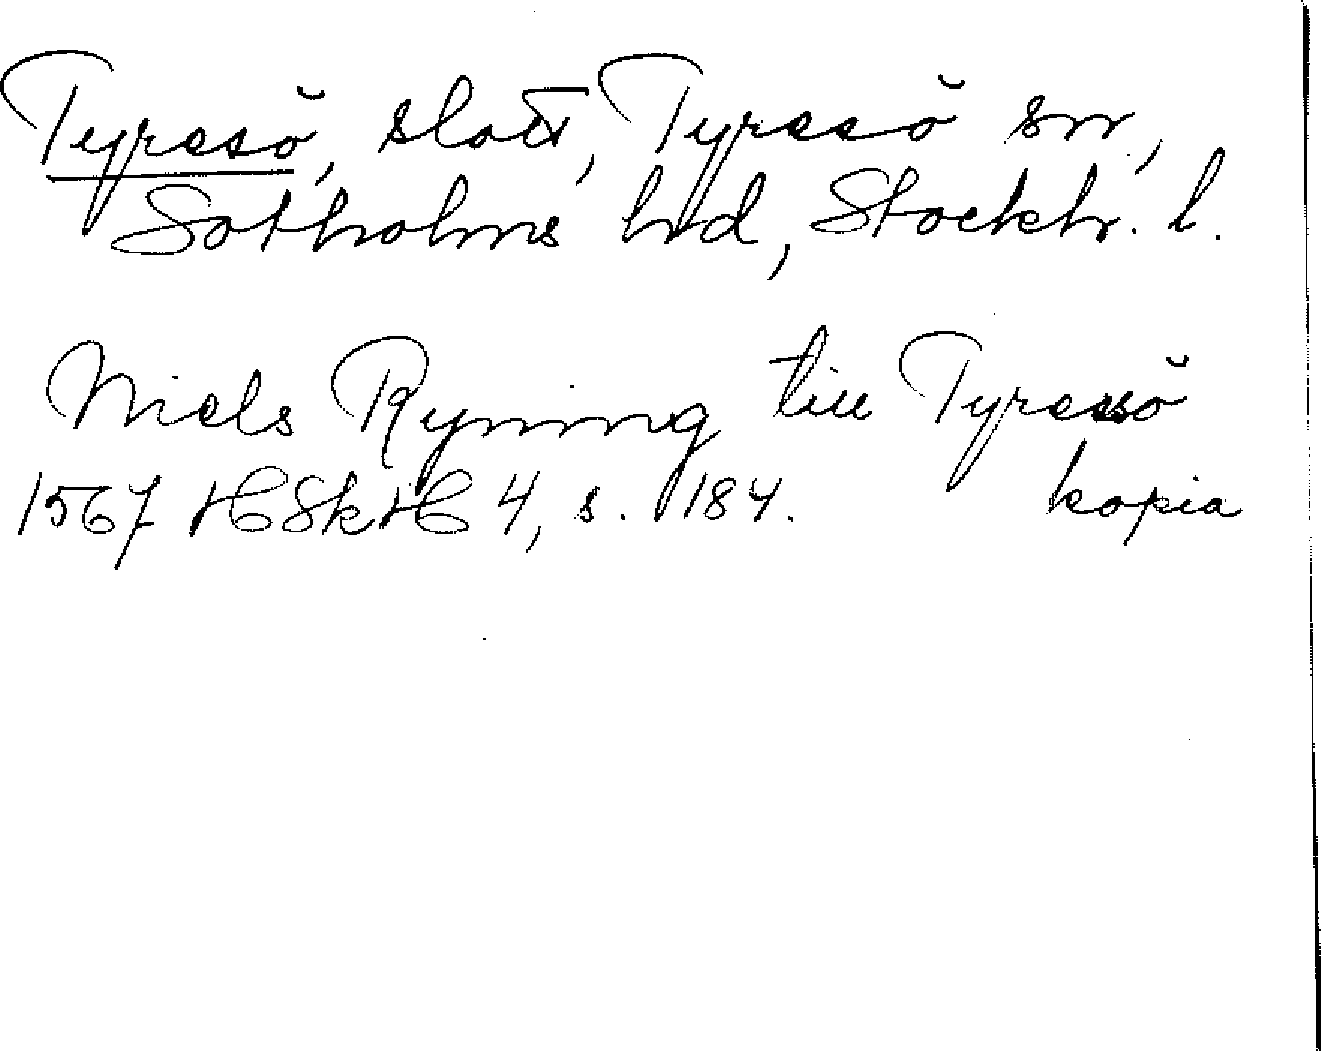 Tyresö, slott, Tyresö sn,
Sotholms hd, Stockh. l.
Niels Ryning till Tyresö
1567 HSkH 4, s. 184. kopia